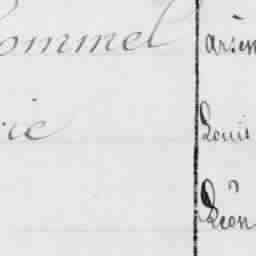 ommel
arsèn
rie
Louis
Léon